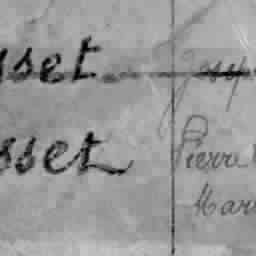 sset
sset Pierre
Mar